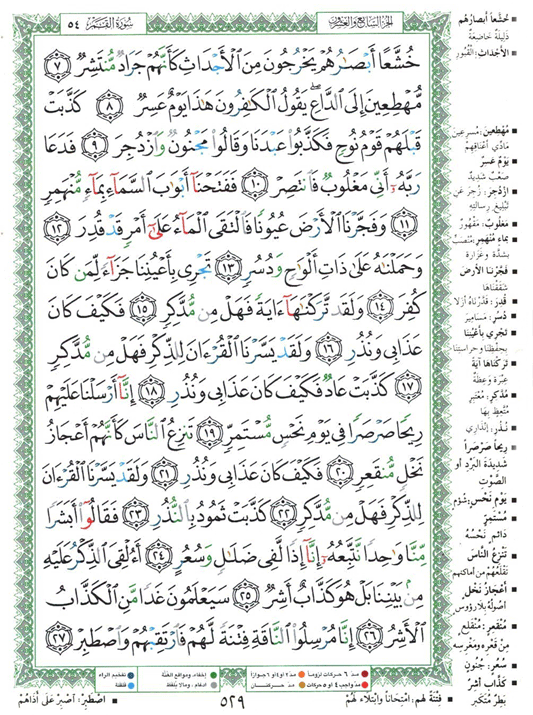 الجزء السابع والعشرون
سورة القمر ٥٤
خُشَّعًا أَبْصَٰرُهُمْ يَخْرُجُونَ مِنَ ٱلْأَجْدَاثِ كَأَنَّهُمْ جَرَادٌ مُّنتَشِرٌ ٧
مُّهْطِعِينَ إِلَى ٱلدَّاعِ ۖ يَقُولُ ٱلْكَٰفِرُونَ هَٰذَا يَوْمٌ عَسِرٌ ٨ كَذَّبَتْ
قَبْلَهُمْ قَوْمُ نُوحٍ فَكَذَّبُوا۟ عَبْدَنَا وَقَالُوا۟ مَجْنُونٌ وَٱزْدُجِرَ ٩ فَدَعَا
رَبَّهُۥٓ أَنِّى مَغْلُوبٌ فَٱنتَصِرْ ١٠ فَفَتَحْنَآ أَبْوَٰبَ ٱلسَّمَآءِ بِمَآءٍ مُّنْهَمِرٍ
١١ وَفَجَّرْنَا ٱلْأَرْضَ عُيُونًا فَٱلْتَقَى ٱلْمَآءُ عَلَىٰٓ أَمْرٍ قَدْ قُدِرَ ١٢
وَحَمَلْنَٰهُ عَلَىٰ ذَاتِ أَلْوَٰحٍ وَدُسُرٍ ١٣ تَجْرِى بِأَعْيُنِنَا جَزَآءً لِّمَن كَانَ
كُفِرَ ١٤ وَلَقَد تَّرَكْنَٰهَآ ءَايَةً فَهَلْ مِن مُّدَّكِرٍ ١٥ فَكَيْفَ كَانَ
عَذَابِى وَنُذُرِ ١٦ وَلَقَدْ يَسَّرْنَا ٱلْقُرْءَانَ لِلذِّكْرِ فَهَلْ مِن مُّدَّكِرٍ
١٧ كَذَّبَتْ عَادٌ فَكَيْفَ كَانَ عَذَابِى وَنُذُرِ ١٨ إِنَّآ أَرْسَلْنَا عَلَيْهِمْ
رِيحًا صَرْصَرًا فِى يَوْمِ نَحْسٍ مُّسْتَمِرٍّ ١٩ تَنزِعُ ٱلنَّاسَ كَأَنَّهُمْ أَعْجَازُ
نَخْلٍ مُّنقَعِرٍ ٢٠ فَكَيْفَ كَانَ عَذَابِى وَنُذُرِ ٢١ وَلَقَدْ يَسَّرْنَا ٱلْقُرْءَانَ
لِلذِّكْرِ فَهَلْ مِن مُّدَّكِرٍ ٢٢ كَذَّبَتْ ثَمُودُ بِٱلنُّذُرِ ٢٣ فَقَالُوٓا۟ أَبَشَرًا
مِّنَّا وَٰحِدًا نَّتَّبِعُهُۥٓ إِنَّآ إِذًا لَّفِى ضَلَٰلٍ وَسُعُرٍ ٢٤ أَءُلْقِىَ ٱلذِّكْرُ عَلَيْهِ
مِنۢ بَيْنِنَا بَلْ هُوَ كَذَّابٌ أَشِرٌ ٢٥ سَيَعْلَمُونَ غَدًا مَّنِ ٱلْكَذَّابُ
ٱلْأَشِرُ ٢٦ إِنَّا مُرْسِلُوا۟ ٱلنَّاقَةِ فِتْنَةً لَّهُمْ فَٱرْتَقِبْهُمْ وَٱصْطَبِرْ ٢٧
خُشَّعاً أَبْصَارُهُم
ذَلِيلَةً خَاضِعَةً
الأَجْدَاثِ: الْقُبُورِ
مُهْطِعِينَ: مُسْرِعِينَ
مَادِّي أَعْنَاقِهِمْ
يَوْمٌ عَسِرٌ
صَعْبٌ شَدِيدٌ
ازْدُجِرَ: زُجِرَ عَنْ
تَبْلِيغِ رِسَالَتِهِ
مَغْلُوبٌ: مَقْهُورٌ
بِمَاءٍ مُنْهَمِرٍ: مُنْصَبٍّ
بِشِدَّةٍ وَغَزَارَةٍ
فَجَّرْنَا الأَرْضَ
شَقَقْنَاهَا
قُدِرَ: قَدَّرْنَاهُ أَزَلًا
دُسُرٍ: مَسَامِيرَ
تَجْرِي بِأَعْيُنِنَا
بِحِفْظِنَا وَحِرَاسَتِنَا
تَرَكْنَاهَا آيَةً
عِبْرَةً وَعِظَةً
مُدَّكِرٍ: مُعْتَبِرٍ
مُتَّعِظٍ بِهَا
نُذُرِ: إِنْذَارِي
رِيحاً صَرْصَراً
شَدِيدَةَ الْبَرْدِ أَوِ
الصَّوْتِ
يَوْمِ نَحْسٍ: شُؤْمٍ
مُسْتَمِرٍّ
دَائِمٍ نَحْسُهُ
تَنْزِعُ النَّاسَ
تَقْلَعُهُمْ مِنْ أَمَاكِنِهِمْ
أَعْجَازُ نَخْلٍ
أُصُولُهُ بِلَا رُؤُوسٍ
مُنْقَعِرٍ: مُنْقَلِعٍ
مِنْ قَعْرِهِ وَمَغْرِسِهِ
سُعُرٍ: جُنُونٍ
كَذَّابٌ أَشِرٌ
بَطِرٌ مُتَكَبِّرٌ
فِتْنَةً لَهُمْ: امْتِحَانًا وَابْتِلَاءً لَهُمْ
اصْطَبِرْ: اصْبِرْ عَلَى أَذَاهُمْ
مدّ ٦ حركات لزوماً
مدّ ٢ أو ٤ أو ٦ جوازاً
إخفاء، ومواقع الغنّة
تفخيم الراء
مدّ واجب ٤ أو ٥ حركات
مدّ حركتان
إدغام، وما لا يلفظ
قلقلة
٥٢٩